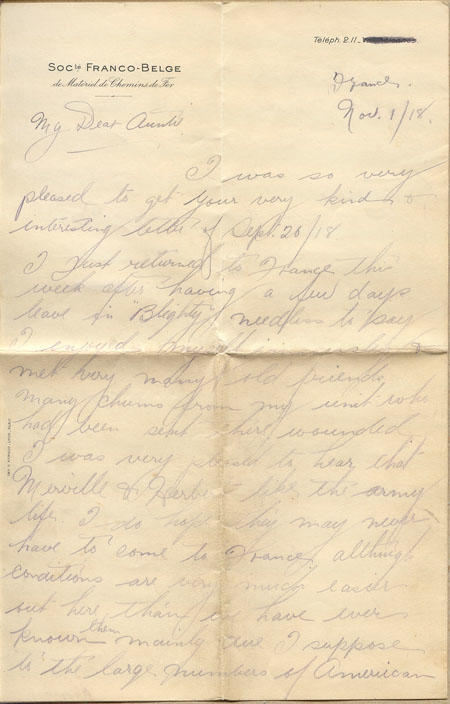 Teléph. 2.11
Socté Franco-Belge
de Matériel de Chemins de Fer
France.
Nov. 1/18.
My Dear Auntie
I was so very
pleased to get your very kind &
interesting letter of Sept. 26/18
I just returned to France this
week after having a few days
leave in "Blighty" needless to say
I enjoyed myself immensely &
met very many old friends,
many chums from my unit who
had been sent there wounded.
I was very pleased to hear that
Merville & Herbert like the army
life. I do hope they may never
have to come to France, although
conditions are very much easier
out here than we have ever
known them mainly due I suppose
to the large numbers of American